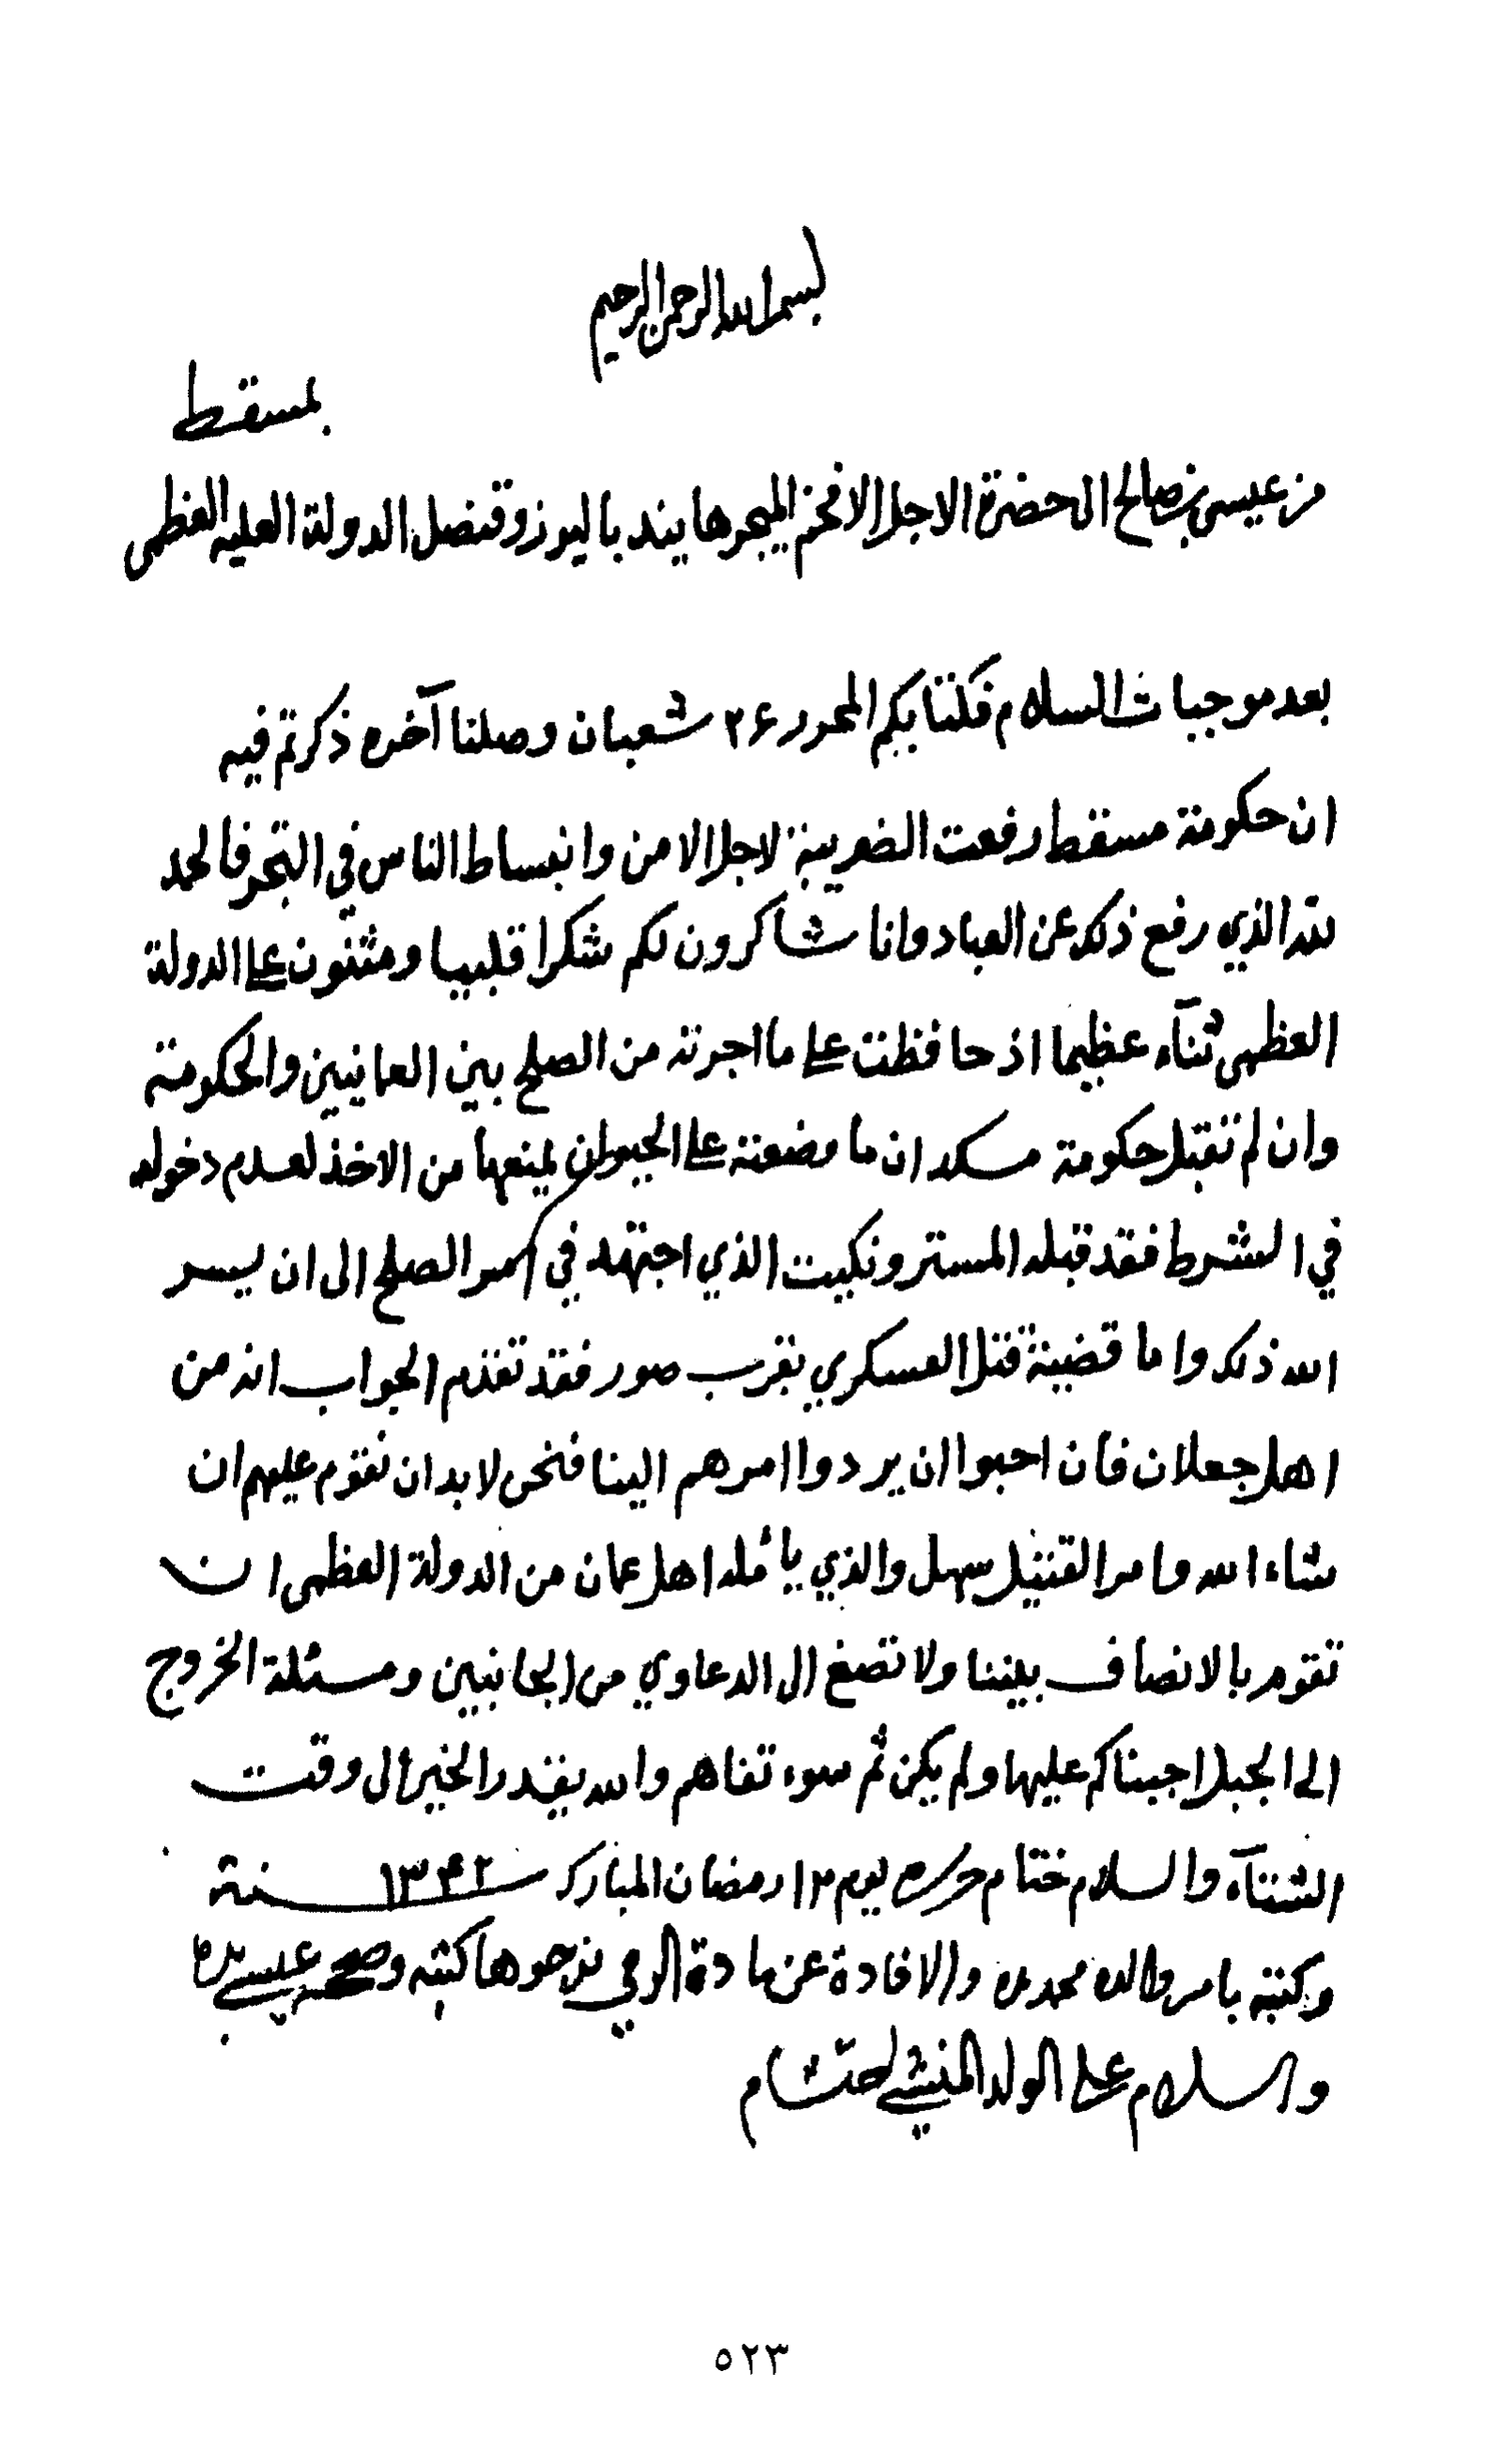 بسم الله الرحمن الرحيم
بمسقط
من عيسى بن صالح الى حضرة الاجل الافخم الميجر هايند باليوز وقنصل الدولة العليه العظمى
بعد موجبات السلام فكتابكم المحرر ٢٤ شعبان وصلنا آخره ذكرتم فيه
ان حكومة مسقط رفعت الضريبة لاجل الامن وانبساط الناس في التجر فالحمد
لله الذي رفع ذلك عن العباد وانا شاكرون لكم شكرا قلبيا ومثنون على الدولة
العظمى ثنآء عظيما اذ حافظت على ما اجرته من الصلح بين العمانيين والحكومة
وان لم تقبل حكومة مسكد ان ما وضعته على الجيطان يمنعها من الاخذ لعدم دخوله
في الشرط فقد قبله المستر ونكيت الذي اجتهد في امر الصلح الى ان يسر
الله ذلك واما قضية قتل العسكري بقرب صور فقد تقدم الجواب انه من
اهل جعلان فان احبوا ان يردوا امرهم الينا فنحن لا بد ان نقوم عليهم ان
شاء الله وامر القتيل سهل والذي يأمله اهل عمان من الدولة العظمى ان
تقوم بالانصاف بيننا ولا تصغ الى الدعاوي من الجانبين ومسئلة الخروج
الى الجبل اجبناكم عليها ولم يكن ثم سوء تفاهم والله يقدر الخير الى وقت
الشتآء والسلام ختام حرر يوم ١٢ رمضان المبارك سنة ١٣٤٢
وكتبه بامر والده محمد والافادة عن مادة نرجوها كتبه وصححه عيسى بيده
والسلام على الولد المنشي احتشام
٥٢٣